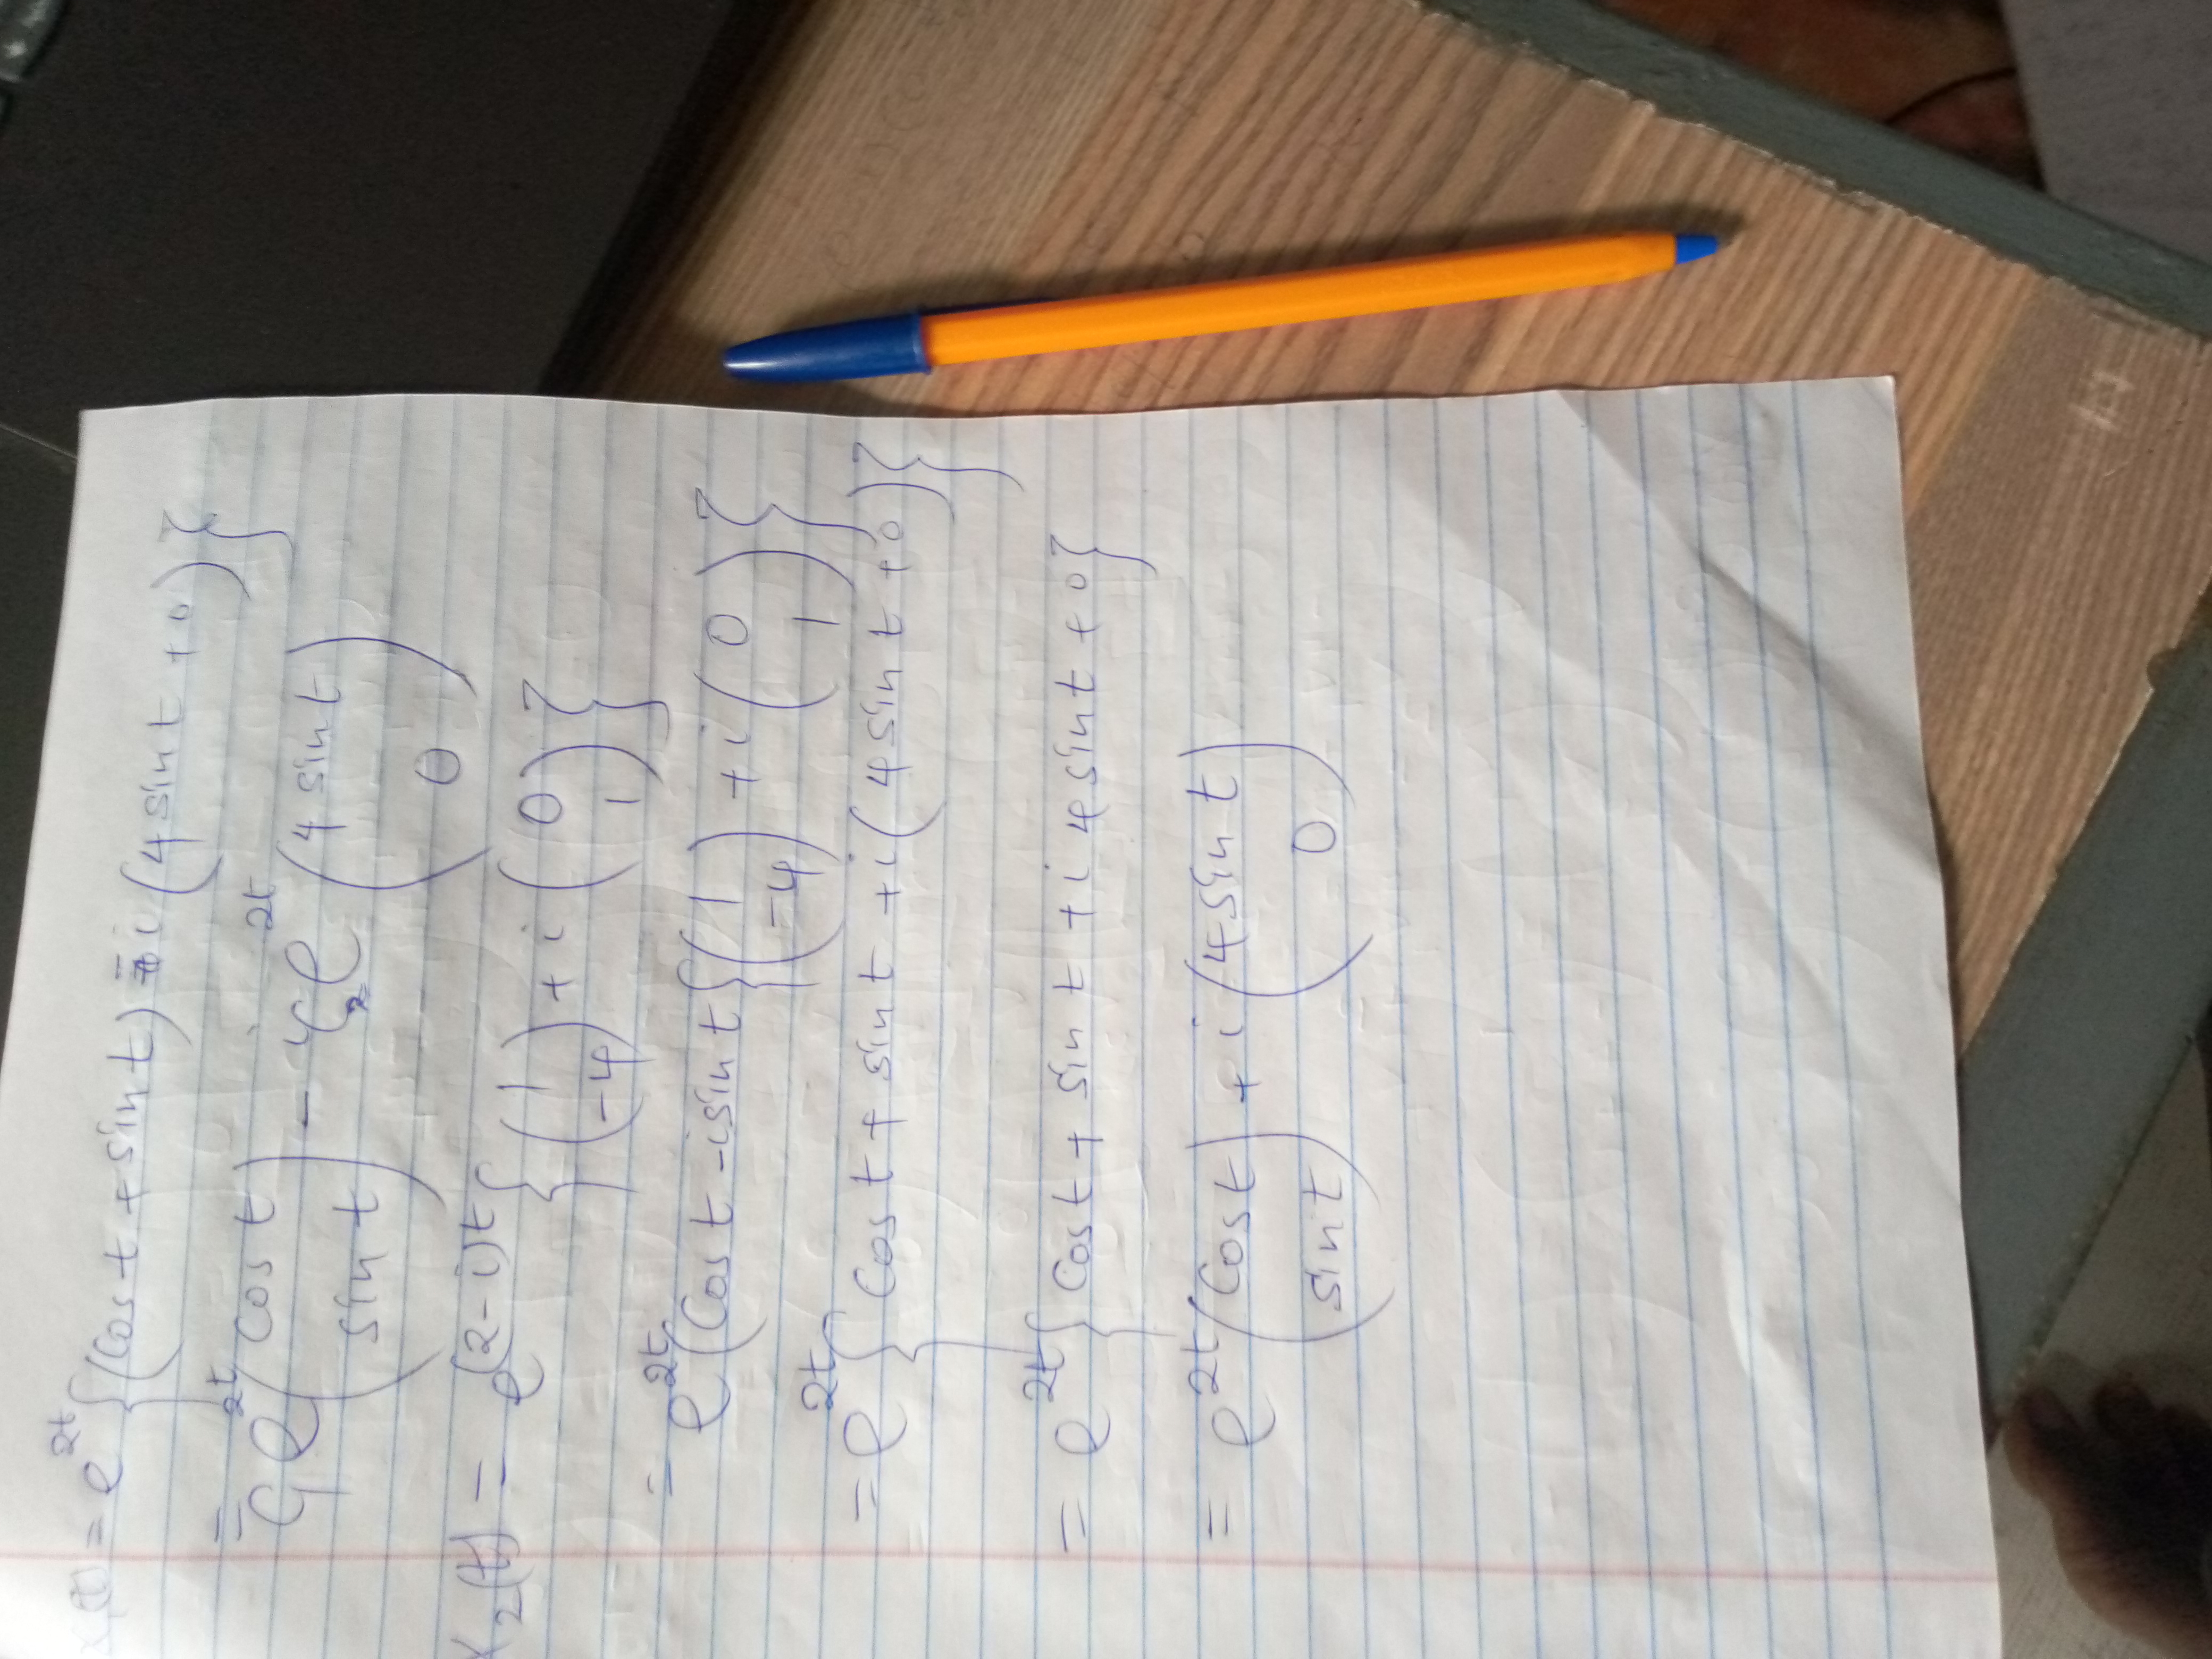 x₁(t) = e^{2t}{(cos t + sin t) - i(4 sin t + 0)}
= C₁e^{2t}(cos t) - C₂e^{2t}(4 sin t)
(sin t) (0)
x₂(t) = e^{(2-i)t}{(1) + i(0)}
(-4) (1)
= e^{2t}(cos t - i sin t{(1) + i(0)}
(-4) (1)
= e^{2t}{cos t + sin t + i(4 sin t + 0)}
= e^{2t}{cos t + sin t + i 4 sin t + 0}
= e^{2t}(cos t) + i(4 sin t)
(sin t) (0)